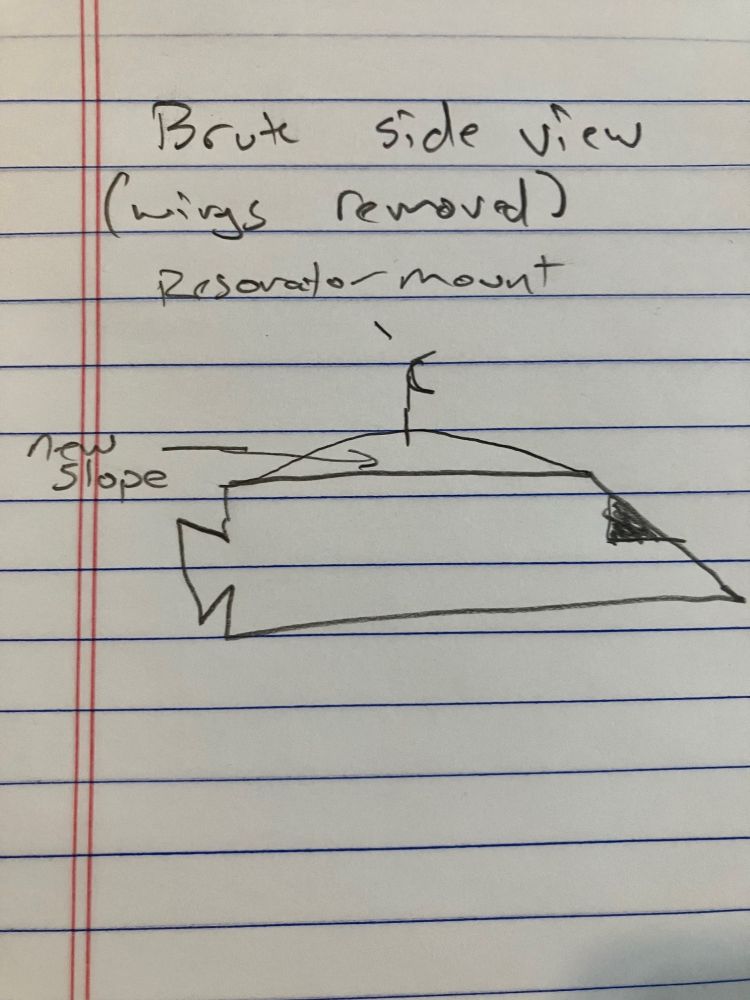 Brute side view
(wings removed)
Resonator mount
new
slope